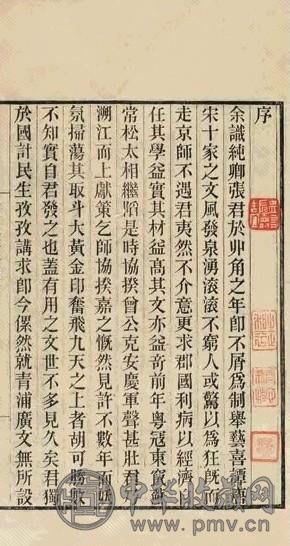 序
余識純卿張君於丱角之年即不屑為制舉藝喜鐔唐
宋十家之文風發泉湧滾滾不窮人或驚以為狂既而
走京師不遇君夷然不介意更求郡國利病以經濟
任其學益實其材益高其文亦益奇前年粵寇東竄
常松太相繼陷是時協揆曾公克安慶軍聲甚壯君
溯江而上獻策乞師協揆嘉之慨然見許不數年而
氛掃蕩其取斗大黃金印奮飛九天之上者胡可勝數
不知實自君發之也蓋有用之文世不多見久矣君獨
於國計民生孜孜講求即今傫然就青浦廣文無所設
中华收藏网
www.pmv.cn